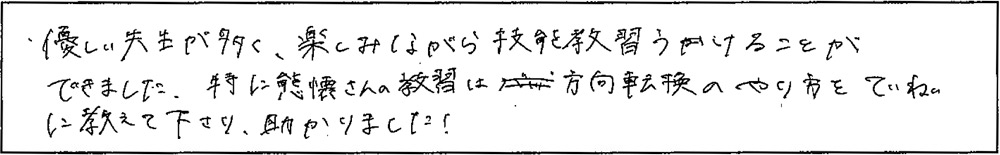 ・優しい先生が多く、楽しみながら技能教習うかけることが
できました。特に熊懐さんの教習は方向転換のやり方をていねい
に教えて下さり、助かりました！